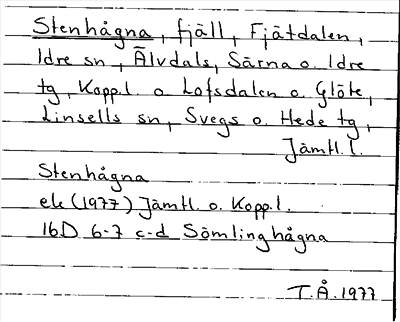 Stenhågna, fjäll, Fjätdalen,
Idre sn, Älvdals, Särna o. Idre
tg, Kopp.l. o Lofsdalen o. Glöte,
Linsells sn, Svegs o. Hede tg,
Jämtl.l.
Stenhågna
ek (1977) Jämtl. o. Kopp.l.
16D 6-7 c-d Sömlinghågna
T.Å. 1977